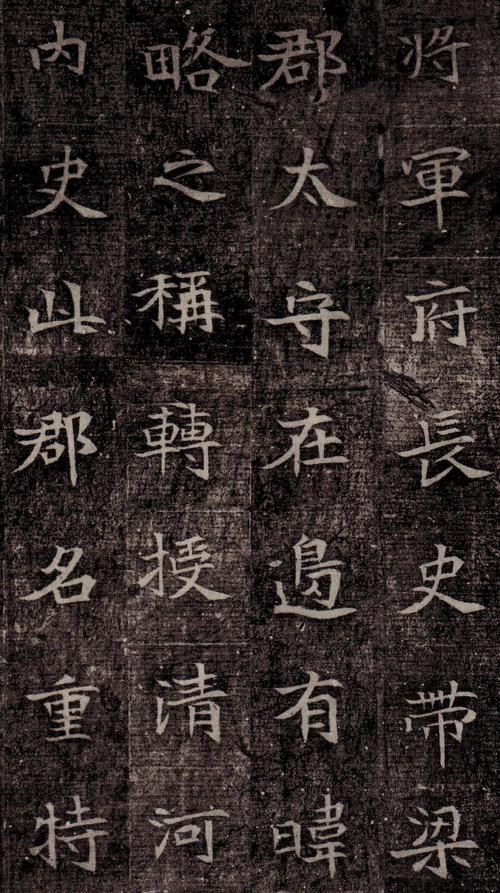 將軍府長史帶梁
郡太守在邊有暐
略之稱轉授清河
內史此郡名重特